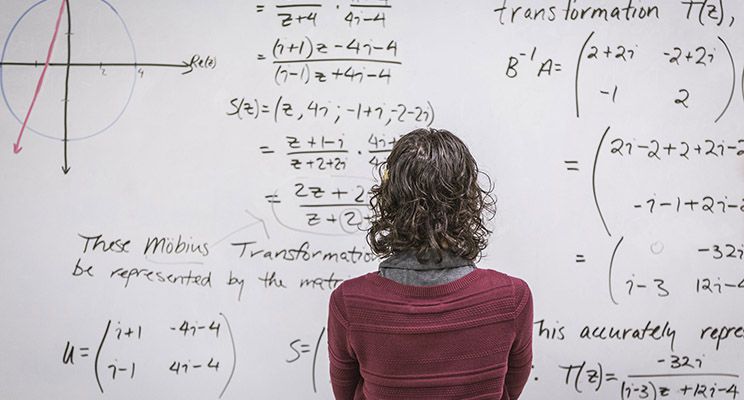 Re(z)
2
4
= / z+4 · / 4i-4
= (i+1)z - 4i - 4 / (i-1)z + 4i - 4
S(z) = (z, 4i; -1+i, -2-2i)
= z+1-i / z+2+2i · 4i / 4
= 2z + 2 / z + 2
These Möbius Transformation
be represented by the matri
u = ( i+1 -4i-4
i-1 4i-4 )
S = (
transformation T(z),
B⁻¹A = ( 2+2i -2+2i
-1 2 )
= ( 2i-2+2+2i-2
-i-1+2i-2
= ( 0 -32i
i-3 12i-4
This accurately repre
: T(z) = -32i / (i-3)z + 12i-4